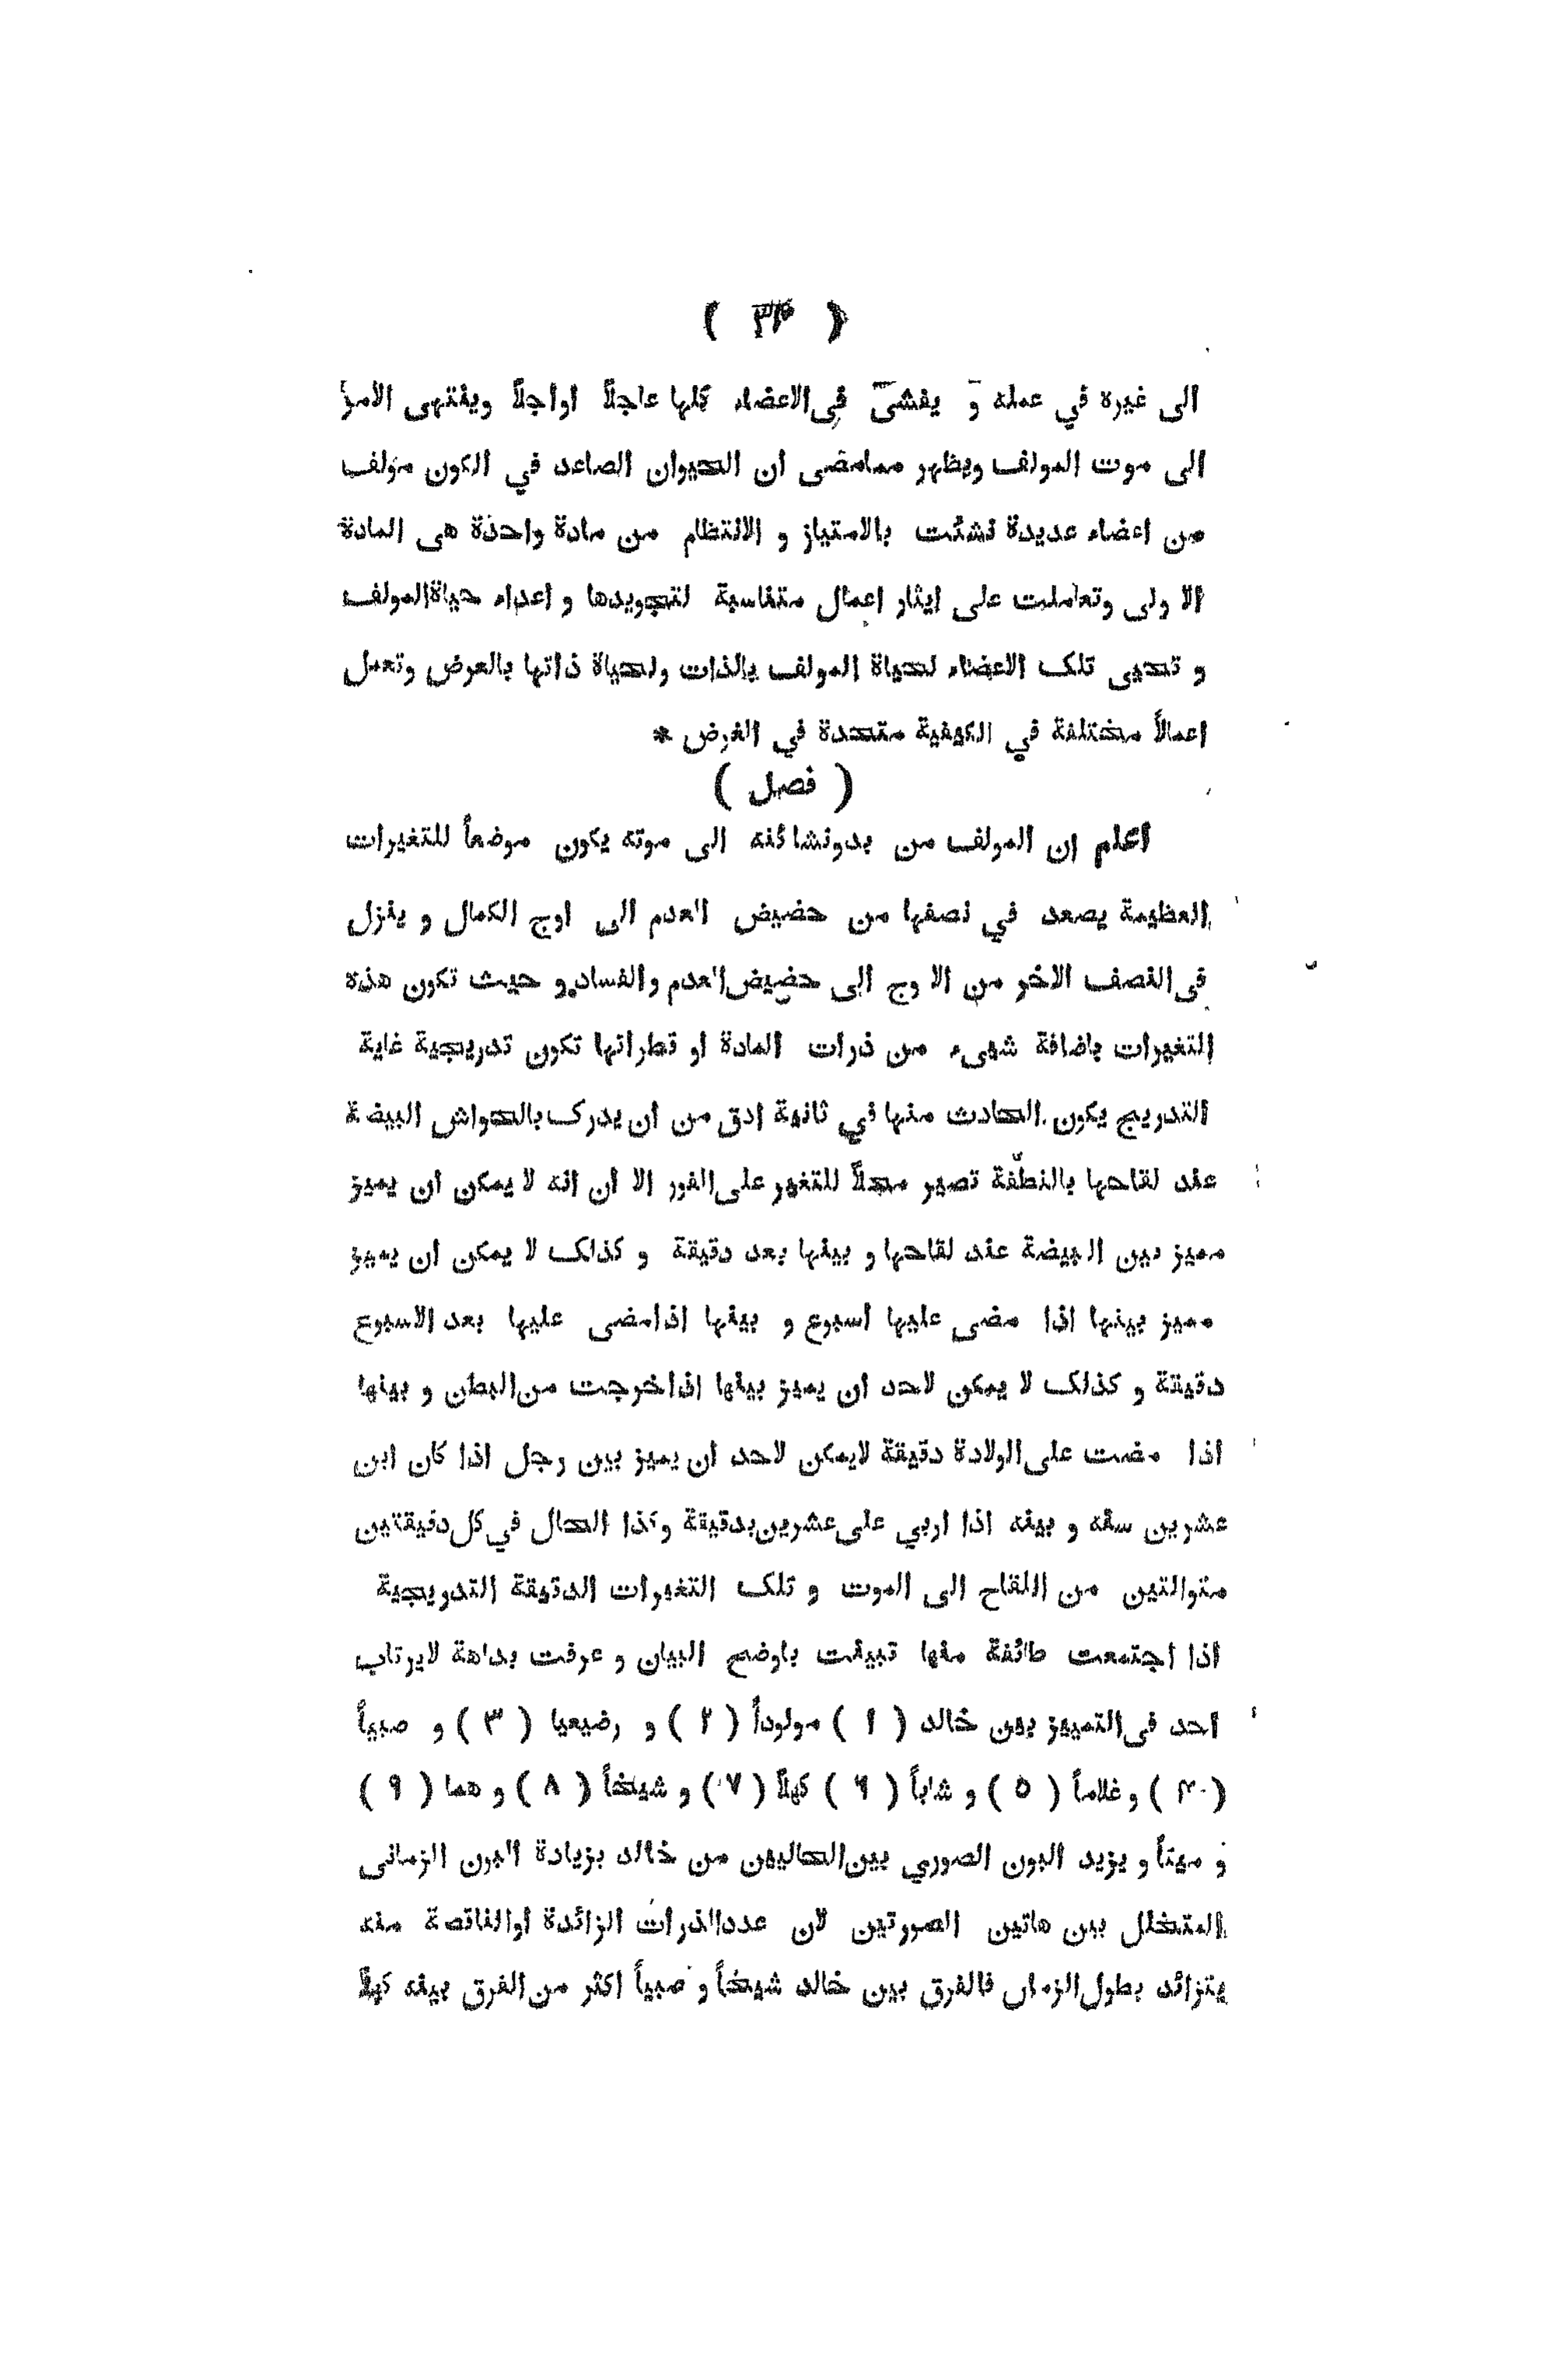 الى غيره في عمله و يفشى فى الاعضاء كلها عاجلاً اواجلاً وينتهى الامر
الى موت المولف ويظهر ممامضى ان الحيوان الصاعد في الكون مؤلف
من اعضاء عديدة نشئت بالامتياز و الانتظام من مادة واحدة هى المادة
الا ولى وتعاملت على ايثار اعمال متناسبة لتجويدها و اعداء حياة المولف
و تحيى تلك الاعضاء لحياة المولف بالذات ولحياة ذاتها بالعرض وتعمل
اعمالاً مختلفة في الكيفية متحدة في الغرض *
( فصل )
اعلم ان المولف من بدونشائنه الى موته يكون موضعاً للتغيرات
العظيمة يصعد في نصفها من حضيض العدم الى اوج الكمال و ينزل
فى النصف الاخر من الا وج الى حضيض العدم والفساد و حيث تكون هذه
التغيرات باضافة شيىء من ذرات المادة او قطراتها تكون تدريجية غاية
التدريج يكون الحادث منها في ثانية ادق من ان يدرك بالحواش البيضة
عند لقاحها بالنطفة تصير محلاً للتغير على الفور الا أن انه لا يمكن ان يميز
مميز بين البيضة عند لقاحها و بينها بعد دقيقة و كذلك لا يمكن ان يميز
مميز بينها اذا مضى عليها اسبوع و بينها اذامضى عليها بعد الاسبوع
دقيقة و كذلك لا يمكن لاحد ان يميز بينها اذاخرجت من البطن و بينها
اذا مضت على الولادة دقيقة لايمكن لاحد ان يميز بين رجل اذا كان ابن
عشرين سنه و بينه اذا اربي على عشرين بدقيقة وكذا الحال في كل دقيقتين
متوالتين من اللقاح الى الموت و تلك التغيرات الدقيقة التدريجية
اذا اجتمعت طائفة منها تبينت باوضح البيان و عرفت بداهة لايرتاب
احد فى التمييز بين خالد ( ١ ) مولوداً ( ٢ ) و رضيعيا ( ٣ ) و صبياً
( ۴ ) و غلاماً ( ٥ ) و شاباً ( ٦ ) كهلاً ( ٧ ) و شيخاً ( ٨ ) و هما ( ٩ )
و ميتاً و يزيد البون الصوري بين الحاليين من خالد بزيادة البون الزمانى
المتخلل بين هاتين الصورتين لان عددالذرات الزائدة اوالناقصة منه
يتزائد بطول الزمان فالفرق بين خالد شيخاً و صبياً اكثر من الفرق بينه كهلاً